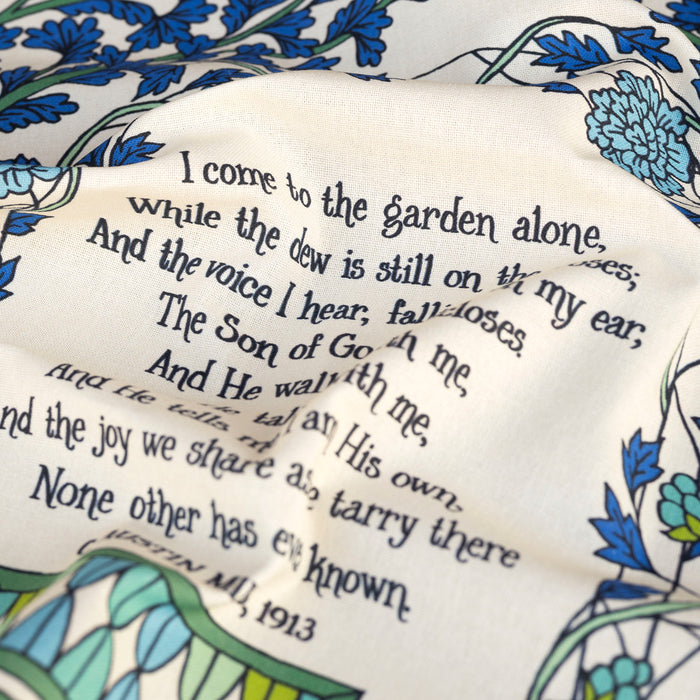 I come to the garden alone,
While the dew is still on th oses;
And the voice I hear, fall my ear,
The Son of Go loses.
And He wal th me,
ith me,
And He tells m I am His own,
And the joy we share as tarry there
None other has ev known.
USTIN MI , 1913